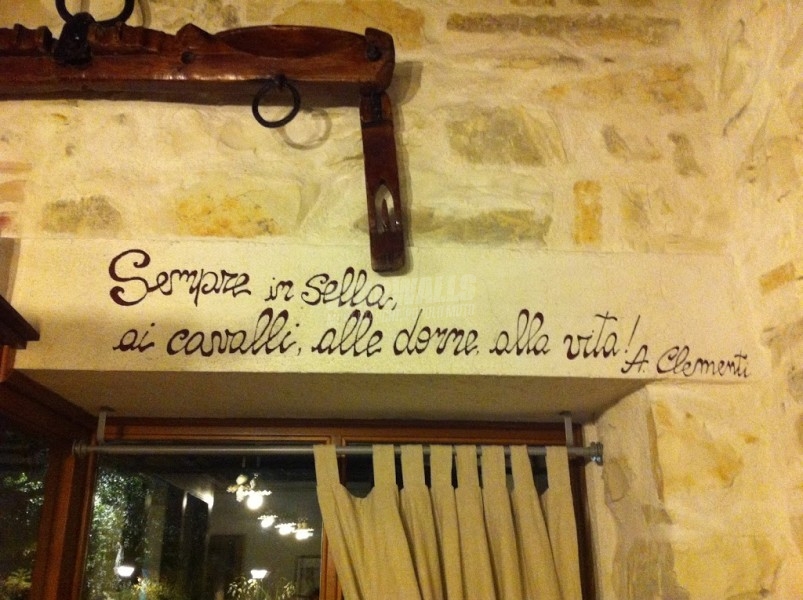 Sempre in sella,
ai cavalli, alle donne, alla vita!
A. Clementi